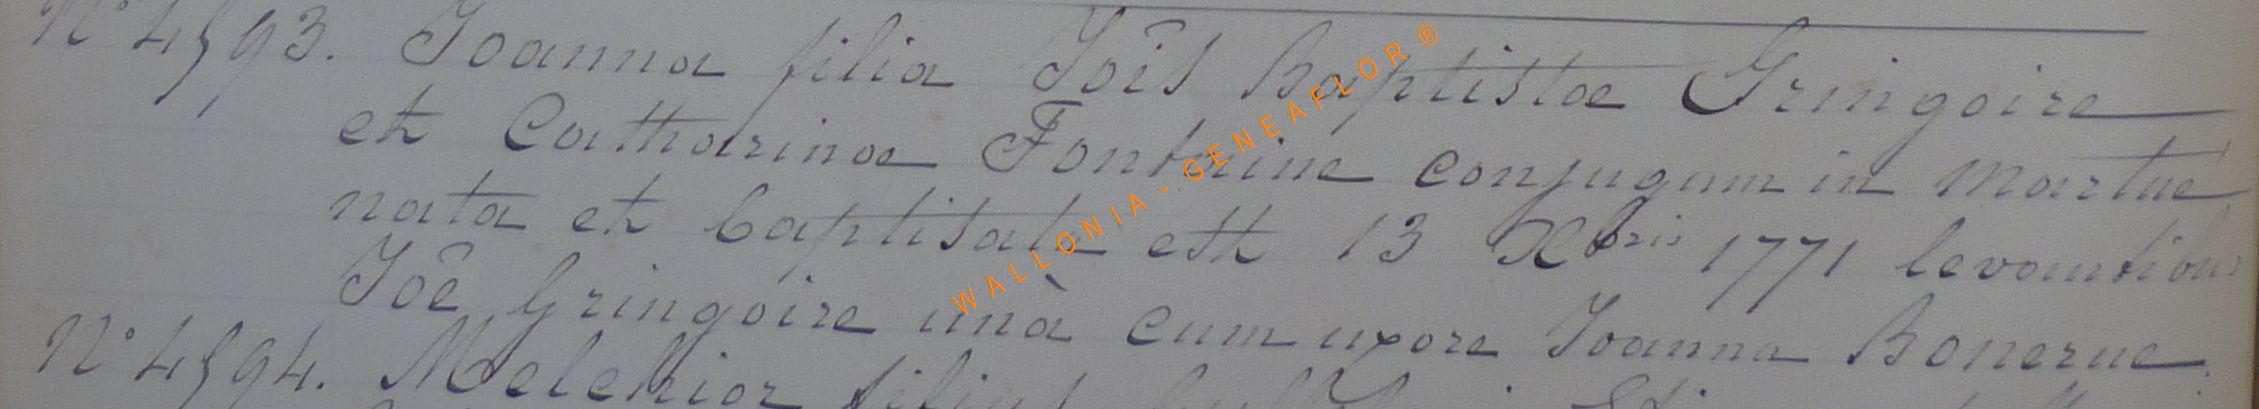 N° 4593. Joanna filia Joîs Baptistae Gringoire
et Catharinae Fontaine conjugum in Martue
nata et baptisata est 13 Xbris 1771 levantibus
Joê Gringoire unà cum uxore Joanna Bonerue.
N° 4594. Melchior filius
WALLONIA - GENEAFLOR®